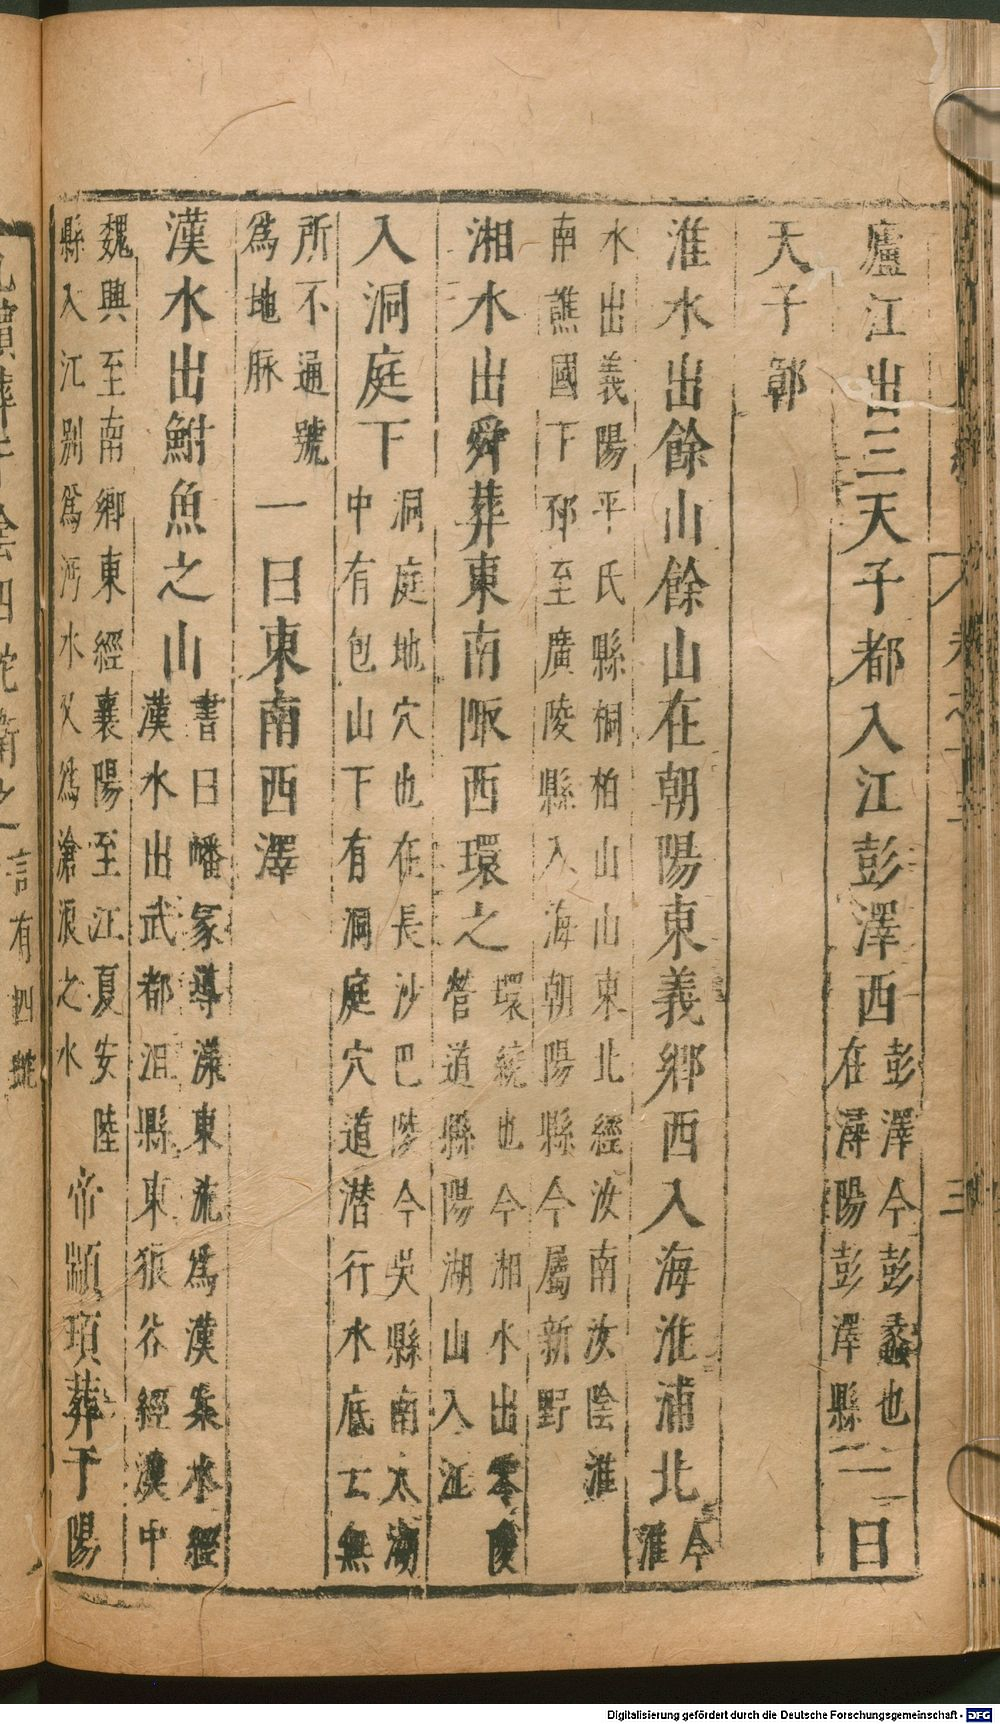 廬江出三天子都入江彭澤西彭澤今彭蠡也在潯陽彭澤縣一曰
天子鄣
淮水出餘山餘山在朝陽東義鄉西入海淮浦北今淮
水出義陽平氏縣桐柏山山東北經汝南汝陰淮南譙國下邳至廣陵縣入海朝陽縣今屬新野
湘水出舜葬東南陬西環之環繞也今湘水出零陵營道縣陽湖山入江
入洞庭下洞庭地穴也在長沙巴陵今吳縣南太湖中有包山下有洞庭穴道潜行水底云無
所不通號爲地脉一曰東南西澤
漢水出鮒魚之山書曰嶓冢導漾東流爲漢案水經漢水出武都沮縣東狼谷經漢中
魏興至南鄉東經襄陽至江夏安陸縣入江别爲沔水又爲滄浪之水帝顓頊葬于陽
言有四蛇
三
Digitalisierung gefördert durch die Deutsche Forschungsgemeinschaft - DFG